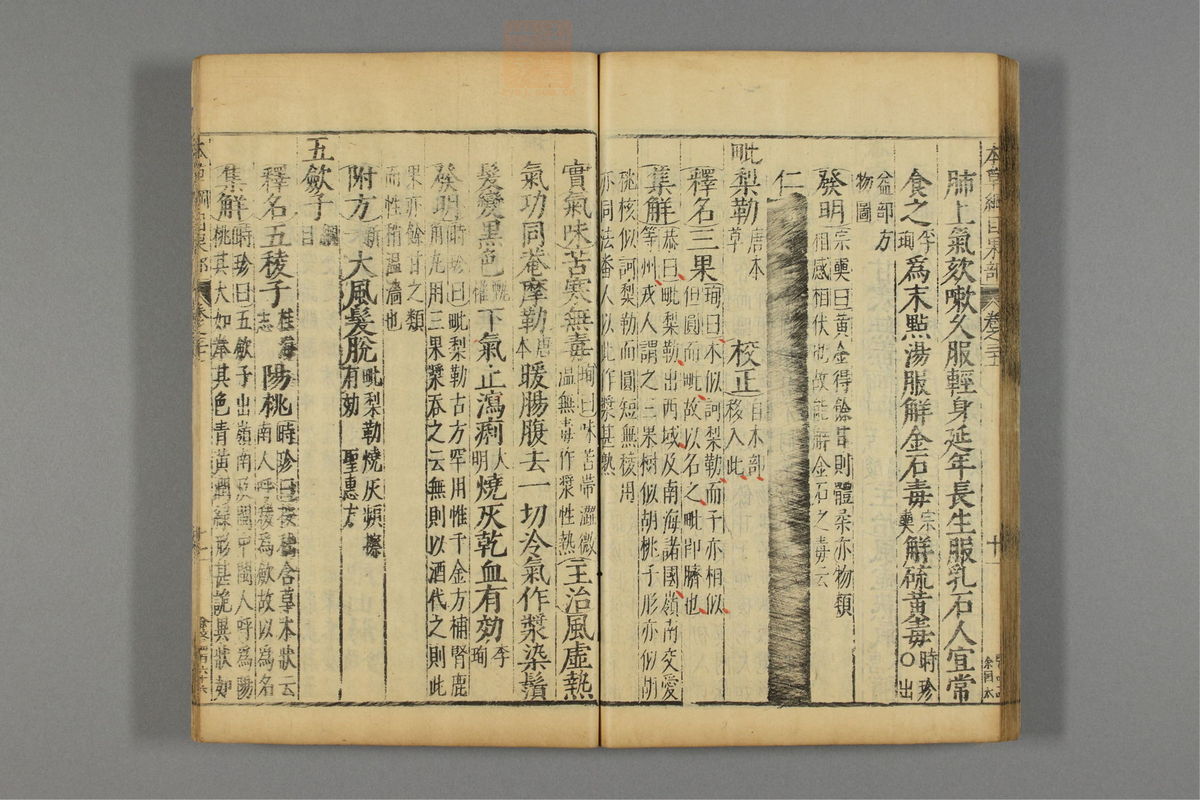 本草綱目果部 卷之三十 十一
肺上氣欬嗽久服輕身延年長生服乳石人宜常
食之李珣為末點湯服解金石毒宗奭解硫黄毒時珍○出
益部方物圖
發明宗奭曰黃金得餘甘則體柔亦物類
相感相伏也故能解金石之毒云
仁
毗梨勒唐本草 校正自木部移入此
釋名三果珣曰木似訶梨勒而子亦相似
但圓而毗故以名之毗即臍也
集解恭曰毗梨勒出西域及南海諸國嶺南交愛
等州戎人謂之三果樹似胡桃子形亦似胡
桃核似訶梨勒而圓短無稜用
亦同法番人以此作漿甚熱
實氣味苦寒無毒珣曰味苦帶澀微
溫無毒作漿性熱主治風虛熱
氣功同菴摩勒唐本暖腸腹去一切冷氣作漿染鬚
髮變黑色甄權下氣止瀉痢大明燒灰乾血有効李珣
發明時珍曰毗梨勒古方罕用惟千金方補腎鹿
角丸用三果漿吞之云無則以酒代之則此
果亦餘甘之類
而性稍溫濇也
附方新一大風髮脫毗梨勒燒灰頻擦
有効聖惠方
五斂子綱目
釋名五稜子桂海志陽桃時珍曰按嵇含草木狀云
南人呼稜為斂故以為名
集解時珍曰五斂子出嶺南及閩中閩人呼為陽
桃其大如拳其色青黃潤綠形甚詭異狀如